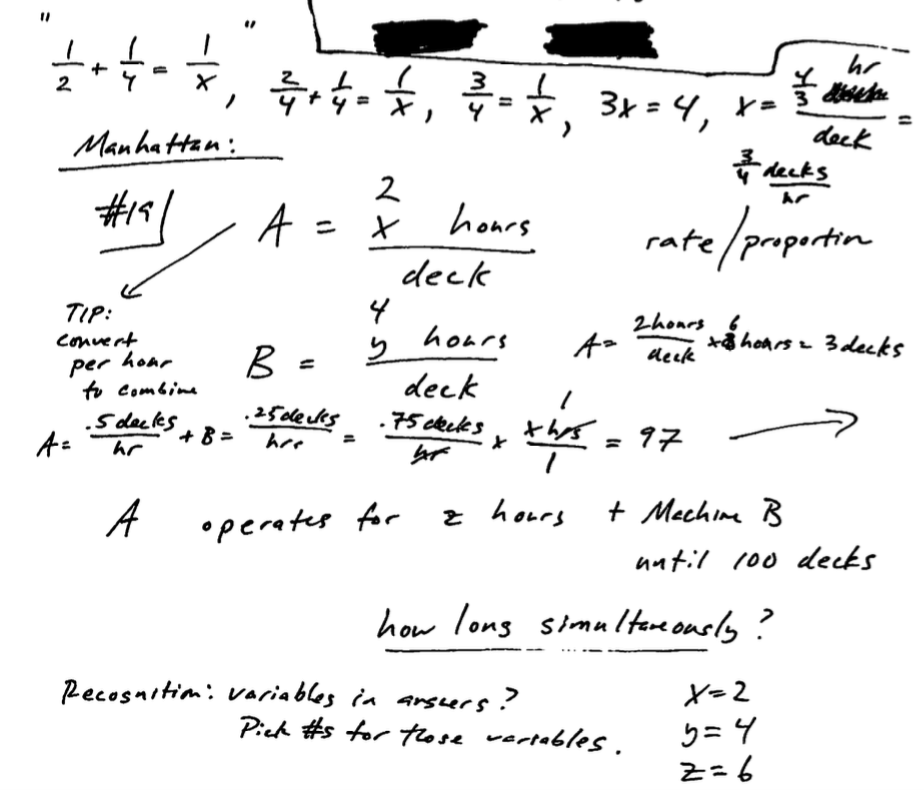 " 1/2 + 1/4 = 1/x ", 2/4 + 1/4 = 1/x, 3/4 = 1/x, 3x = 4, x = 4/3 hr/deck =
3/4 decks/hr
Manhattan:
#19
A = 2 x hours/deck
rate/proportion
TIP:
convert
per hour
to combine
B = 4 y hours/deck
A = 2 hours/deck x 6 hours = 3 decks
A = .5 decks/hr + B = .25 decks/hrr = .75 decks/hr x x hrs/1 = 97
1
A operates for z hours + Machine B
until 100 decks
how long simultaneously?
Recognition: variables in answers?
Pick #s for those variables.
x=2
y=4
z=6